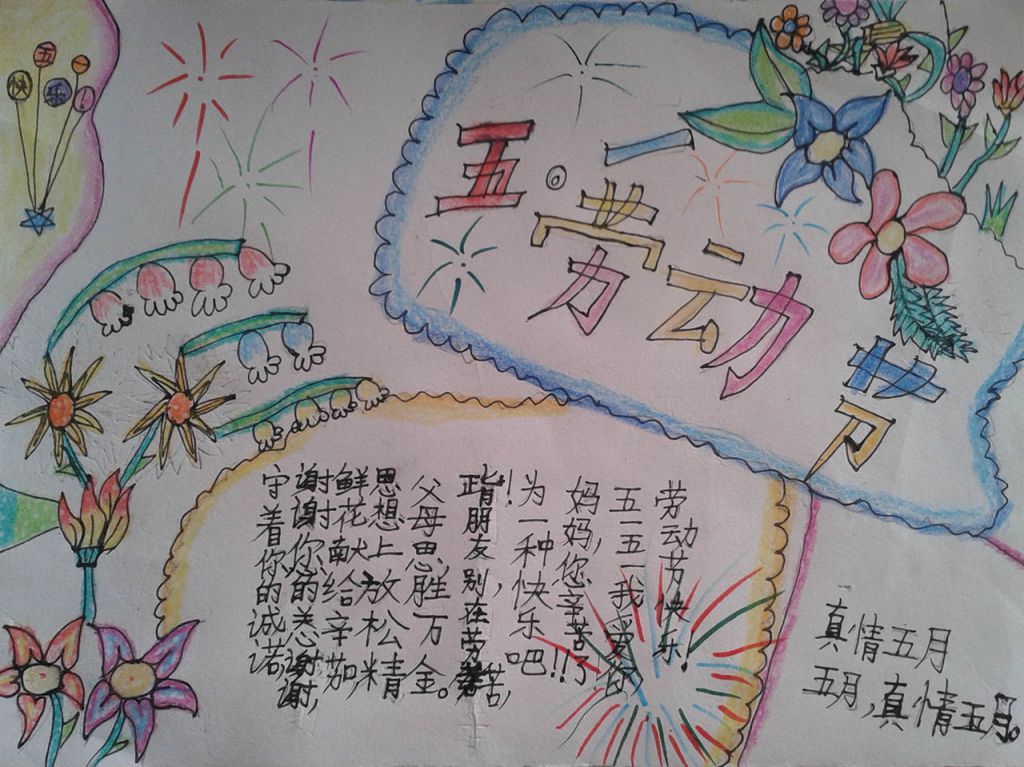 五一
快乐!
五·一
劳动节
劳动节快乐!
五一五一我爱的
妈妈,您辛苦了
为一种快乐吧!!
朋友,别在劳苦,
父母恩,胜万金。
思想上放松精
鲜花献给辛茄,
谢谢你的关谢谢,
守着你的诚诺
真情五月
五月,真情五月。